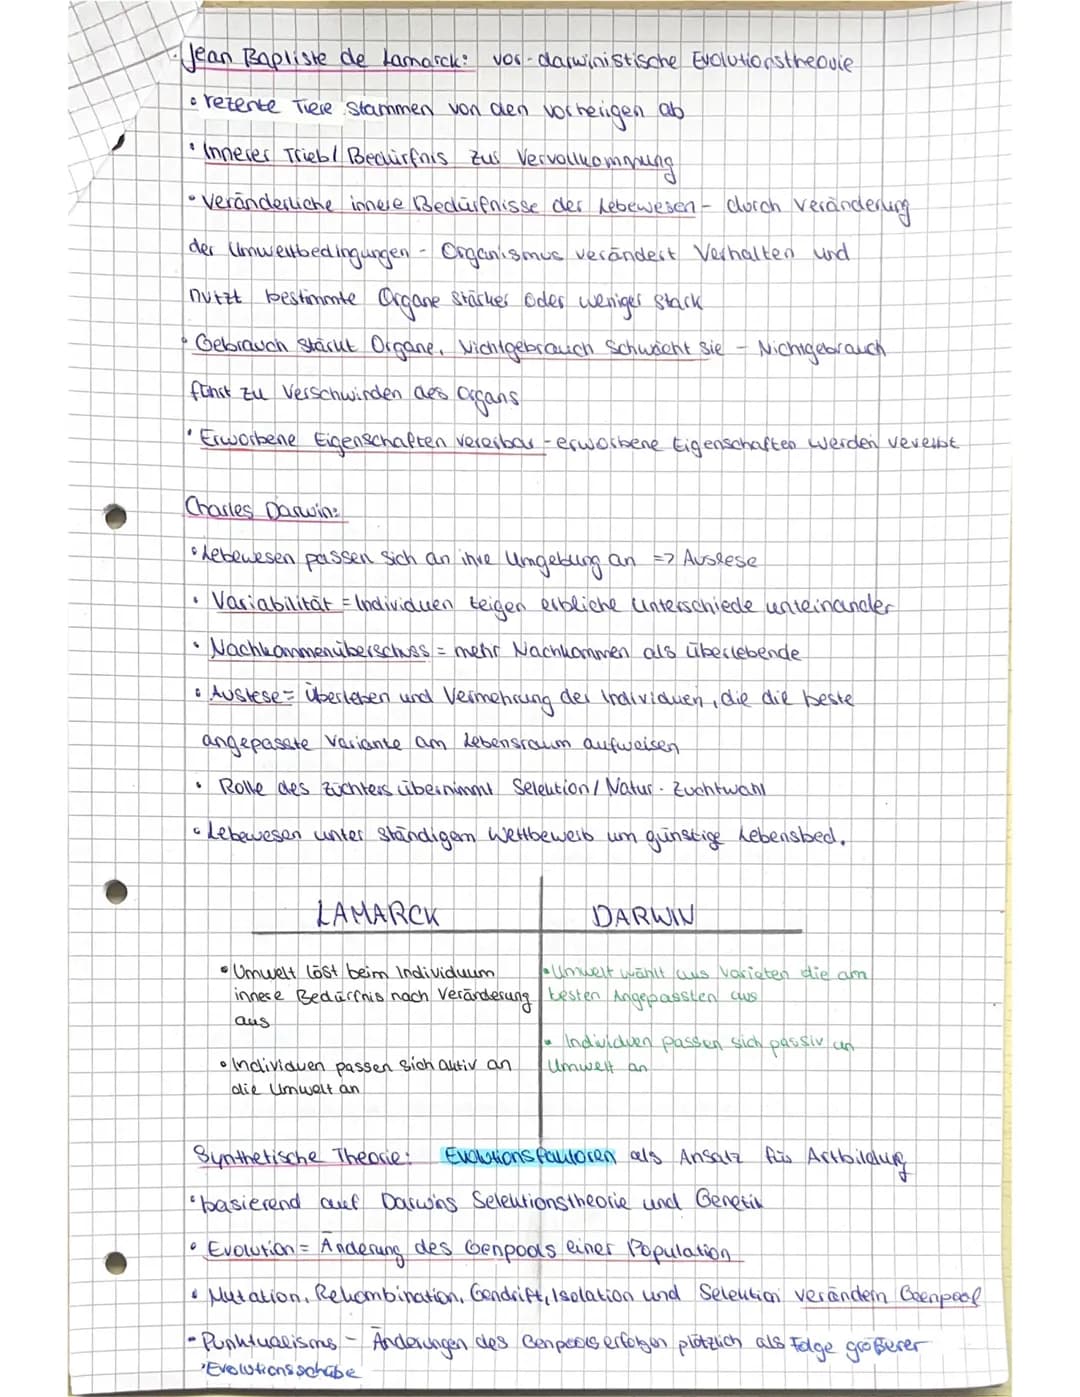 Jean Baptiste de Lamarck: vor-darwinistische Evolutionstheorie
• rezente Tiere stammen von den vorherigen ab
• Innerer Trieb/ Bedürfnis zur Vervollkommnung
• Veränderliche innere Bedürfnisse der Lebewesen - durch Veränderung
der Umweltbedingungen - Organismus verändert Verhalten und
nutzt bestimmte Organe stärker oder weniger stark
• Gebrauch stärkt Organe, Nichtgebrauch schwächt sie - Nichtgebrauch
führt zu Verschwinden des Organs
• Erworbene Eigenschaften vererbar - erworbene Eigenschaften werden vererbt
Charles Darwin:
• Lebewesen passen sich an ihre Umgebung an => Auslese
• Variabilität = Individuen zeigen erbliche Unterschiede untereinander
• Nachkommenüberschuss = mehr Nachkommen als Überlebende
• Auslese = Überleben und Vermehrung der Individuen, die die beste
angepasste Variante am Lebensraum aufweisen
• Rolle des Züchters übernimmt Selektion / Natur - Zuchtwahl
• Lebewesen unter ständigem Wettbewerb um günstige Lebensbed.
LAMARCK DARWIN
• Umwelt löst beim Individuum
innere Bedürfnis nach Veränderung
aus
• Individuen passen sich aktiv an
die Umwelt an
• Umwelt wählt aus Varieten die am
besten Angepassten aus
• Individuen passen sich passiv an
Umwelt an
Synthetische Theorie: Evolutionsfaktoren als Ansatz für Artbildung
• basierend auf Darwins Selektionstheorie und Genetik
• Evolution = Änderung des Genpools einer Population
• Mutation, Rekombination, Gendrift, Isolation und Selektion verändern Genpool
- Punktualisms - Änderungen des Genpools erfolgen plötzlich als Folge größerer
Evolutionsschübe